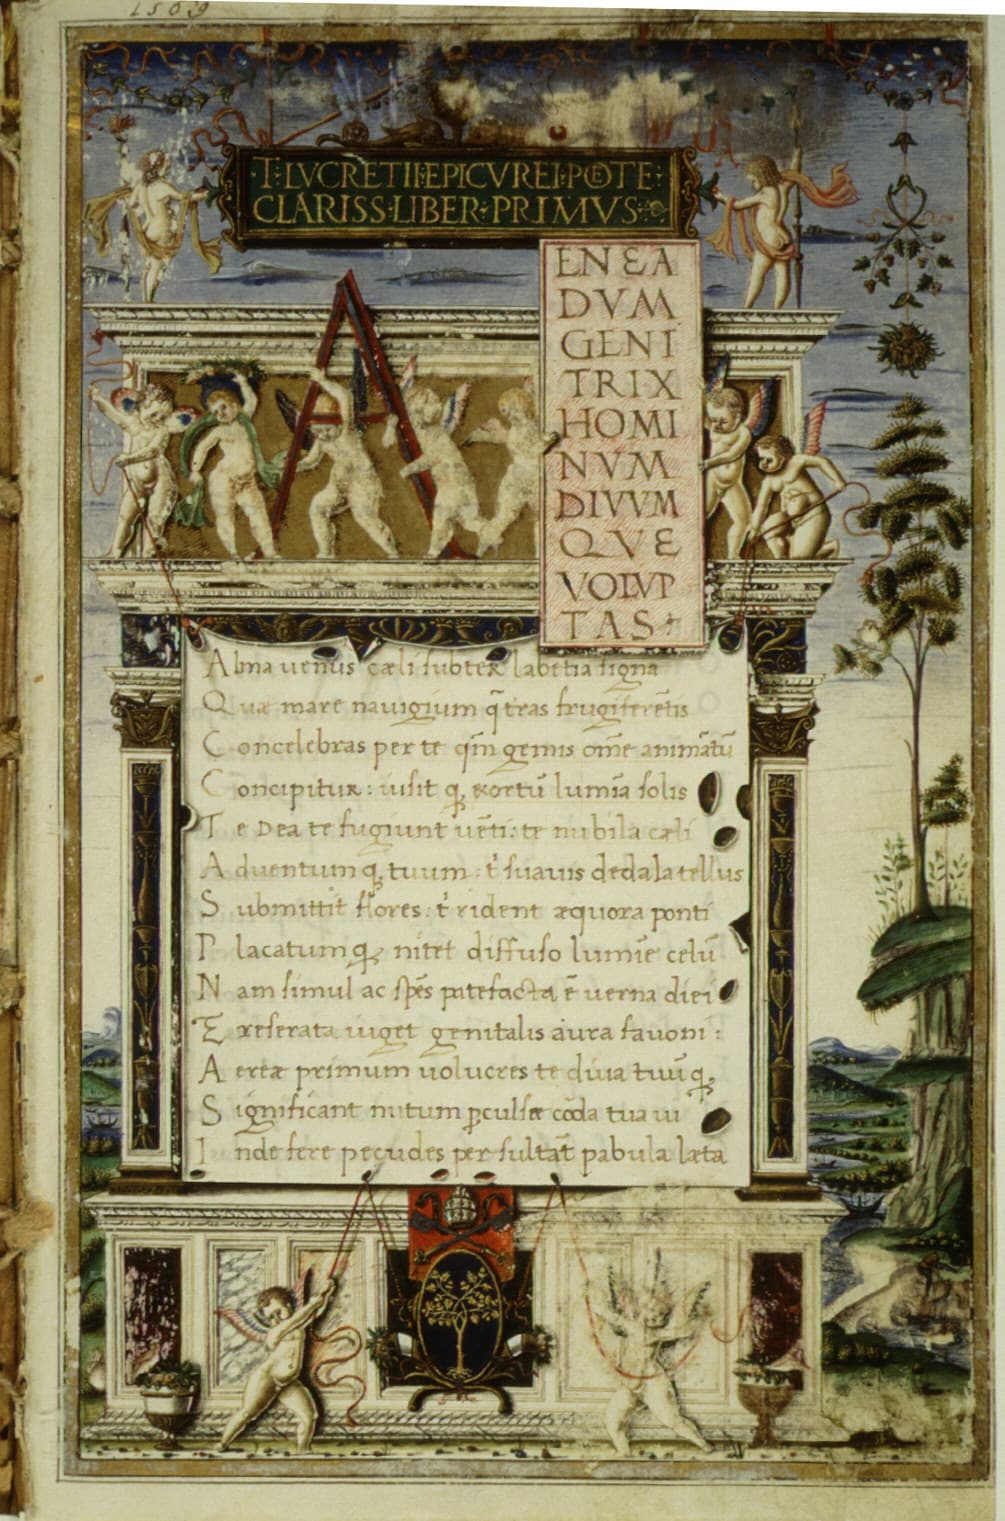 1503
T· LVCRETII·EPICVREI·POETE·
CLARISS·LIBER·PRIMVS·
A
ENEA
DVM
GENI
TRIX
HOMI
NVM
DIVVM
QVE
VOLVP
TAS
Alma uenus cæli subter labẽtia signa
Quæ mare nauigium q̃ tras frugiferẽtis
Concelebras per te qm̃ genus om̃e animãtũ
Concipitur: iusit q; exortũ lumĩa solis
Te Dea te fugiunt uẽti: te nubila cæli
Aduentumq; tuum: t' suauis dedala tellus
Submittit flores: t' rident æquora ponti
Placatumq; nitet diffuso lumĩe celũ
Nam simul ac sp̃es patefacta ẽ uerna diei
Et reserata uiget genitalis aura fauoni:
Aereæ primum uolucres te diua tuũq;
Significant initum ꝑculsæ corda tua ui
Inde fere pecudes per sultãt pabula læta